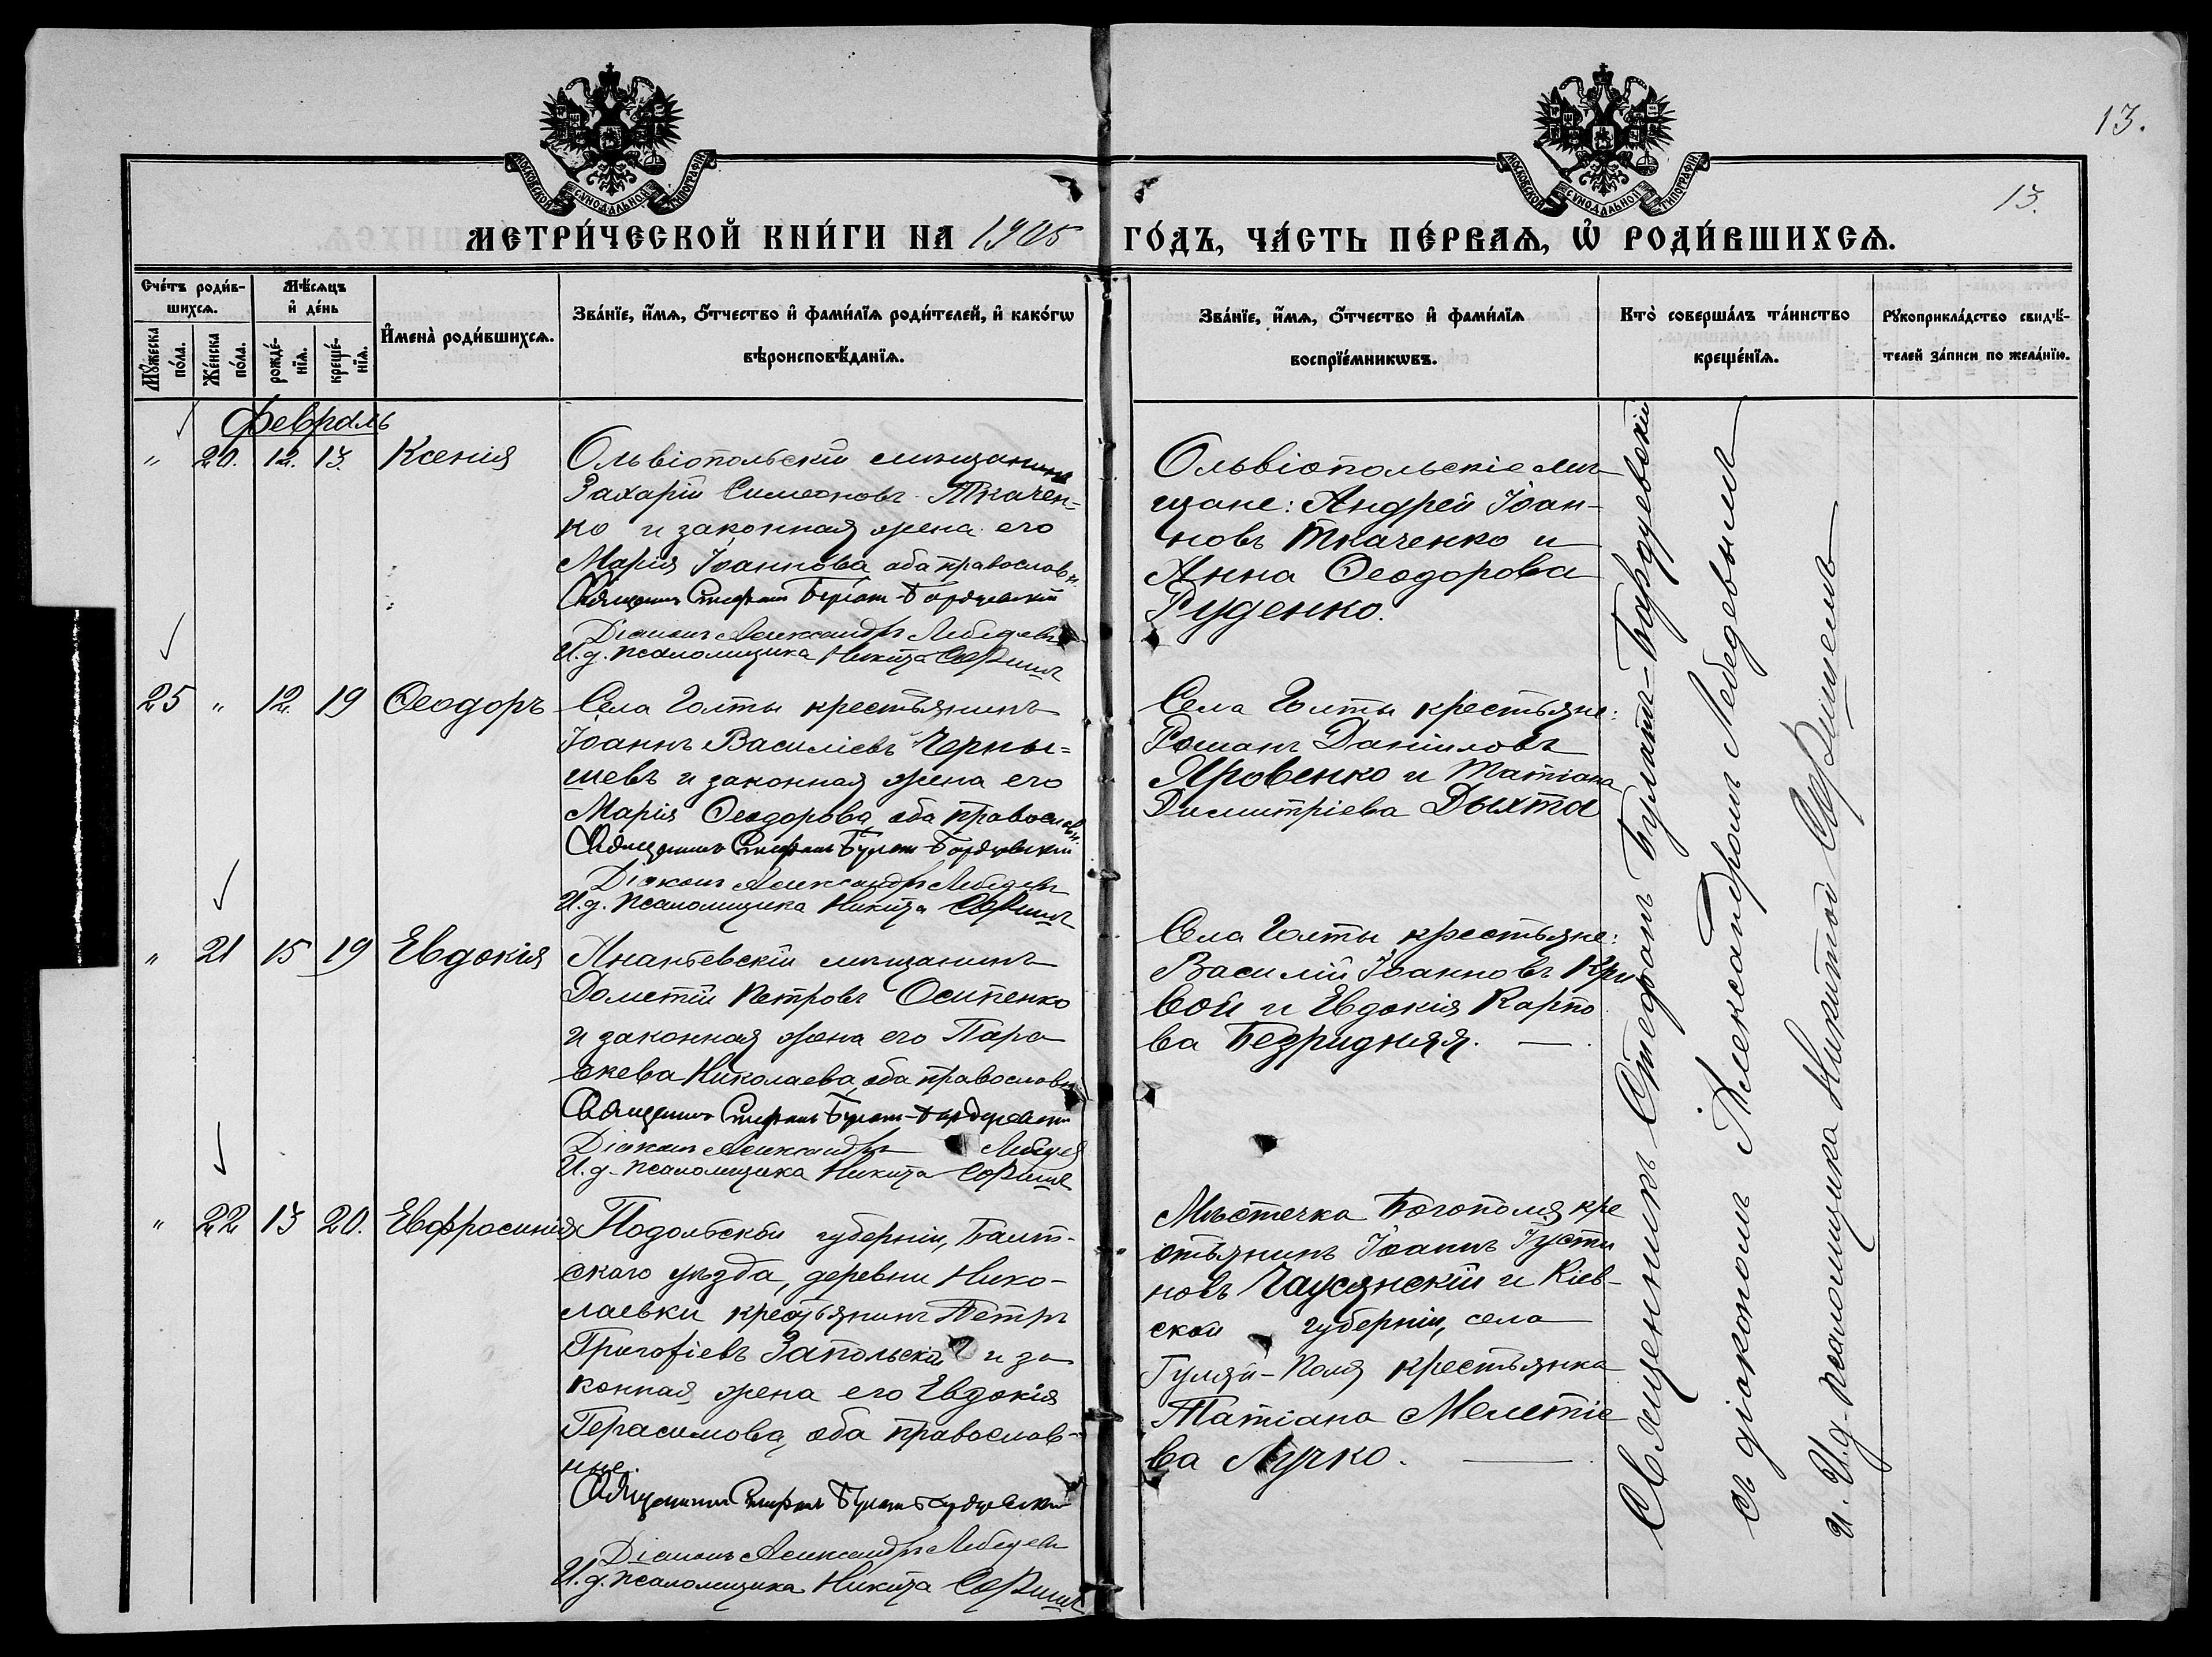 13.
13.
МОСКОВСКОЙ СУНОДАЛЬНОЙ ТИПОГРАФІИ
МОСКОВСКОЙ СУНОДАЛЬНОЙ ТИПОГРАФІИ
МЕТРИ́ЧЕСКОЙ КНИ́ГИ НА 1905 ГО́ДЪ, ЧА́СТЬ ПЕ́РВАѦ, Ѡ҆ РОДИ́ВШИХСѦ.
Сче́тъ роди́в-
шихсѧ.
Мꙋ́жеска
по́ла.
Же́нска
по́ла.
Мѣ́сѧцъ
и҆ де́нь
рожде́-
нїѧ.
креще́-
нїѧ.
И҆мена̀ роди́вшихсѧ.
Зва́нїе, и҆́мѧ, ѻ҆́тчество и҆ фами́лїѧ роди́телей, и҆ како́гѡ
вѣроисповѣ́данїѧ.
Зва́нїе, и҆́мѧ, ѻ҆́тчество и҆ фами́лїѧ
воспрїе́мникѡвъ.
Кто̀ соверша́лъ та́инство
креще́нїѧ.
Рꙋкоприкла́дство свидѣ́-
телей за́писи по жела́нїю.
Февраль
" 20. 12. 13. Ксенія
Ольвіопольскій мѣщанинъ
Захарій Симеоновъ Ткачен-
ко и законная жена его
Марія Іоаннова, оба православн.
Священникъ Стефанъ Булатъ-Бордуевскій
Діаконъ Александръ Лебедевъ
И.д. псаломщика Никита
Ольвіопольскіе мѣ-
щане: Андрей Іоан-
новъ Ткаченко и
Анна Ѳеодорова
Руденко.
25 " 12. 19 Ѳеодоръ
Села Голты крестьянинъ
Іоаннъ Василіевъ Черны=
шевъ и законная жена его
Марія Ѳеодорова, оба православн.
Священникъ Стефанъ Булатъ-Бордуевскій
Діаконъ Александръ Лебедевъ
И.д. псаломщика Никита
Села Голты крестьяне:
Романъ Даніиловъ
Яровенко и Татіана
Димитріева Дыхта
" 21 15 19 Евдокія
Ананьевскій мѣщанинъ
Дометій Петровъ Осипенко
и законная жена его Пара-
скева Николаева, оба православн.
Священникъ Стефанъ Булатъ-Бордуевскій
Діаконъ Александръ Лебедев
И.д. псаломщика Никита
Села Голты крестьяне:
Василій Іоанновъ Кри
вой и Евдокія Карпо
ва Безридняя.
" 22 13 20. Евфросинія
Подольской губерніи, Балт-
скаго уѣзда, деревни Нико-
лаевки крестьянинъ Петръ
Григоріевъ Запольскій и за
конная жена его Евдокія
Герасимова, оба православ-
ные.
Священникъ Стефанъ Булатъ-Бордуевскій
Діаконъ Александръ Лебедевъ
И.д. псаломщика Никита
Мѣстечка Богополя кре
стьянинъ Іоаннъ Іусти
новъ Чаусянскій и Кіев-
ской губерніи, села
Гуляй-Поля крестьянка
Татіана Мелетіе
ва Лучко.
Священникъ Стефанъ Булатъ-Бордуевскій
съ діакономъ Александромъ Лебедевымъ
и И.д. псаломщика Никитой